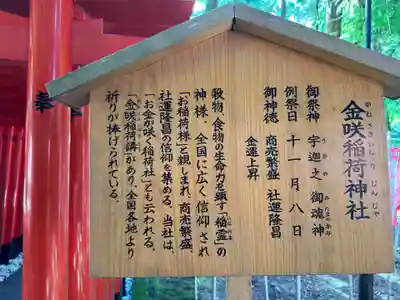 金咲稲荷神社
かねさきいなりじんじゃ
御祭神 宇迦之御魂神
うかのみたまのかみ
例祭日 十一月八日
御神徳 商売繁盛 社運隆昌
金運上昇
穀物・食物の生命力を顕す「稲霊」の
神様・全国に広く信仰され
「お稲荷様」と親しまれ、商売繁盛、
社運隆昌の信仰を集める。当社は、
「お金が咲く稲荷社」とも云われる。
「金咲稲荷講」があり、全国各地より
祈りが捧げられている。
奉